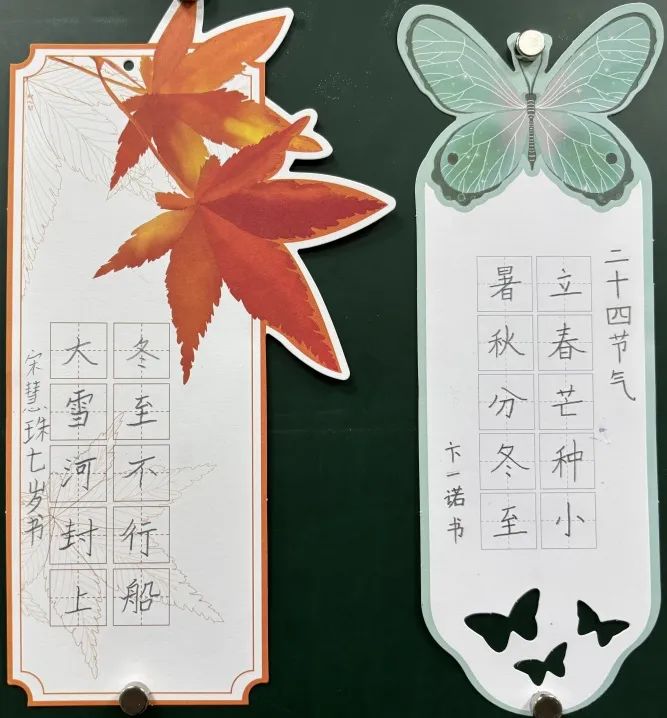 冬至不行船
大雪河封上
宋慧珠七岁书
二十四节气
立春芒种小
暑秋分冬至
卞一诺书